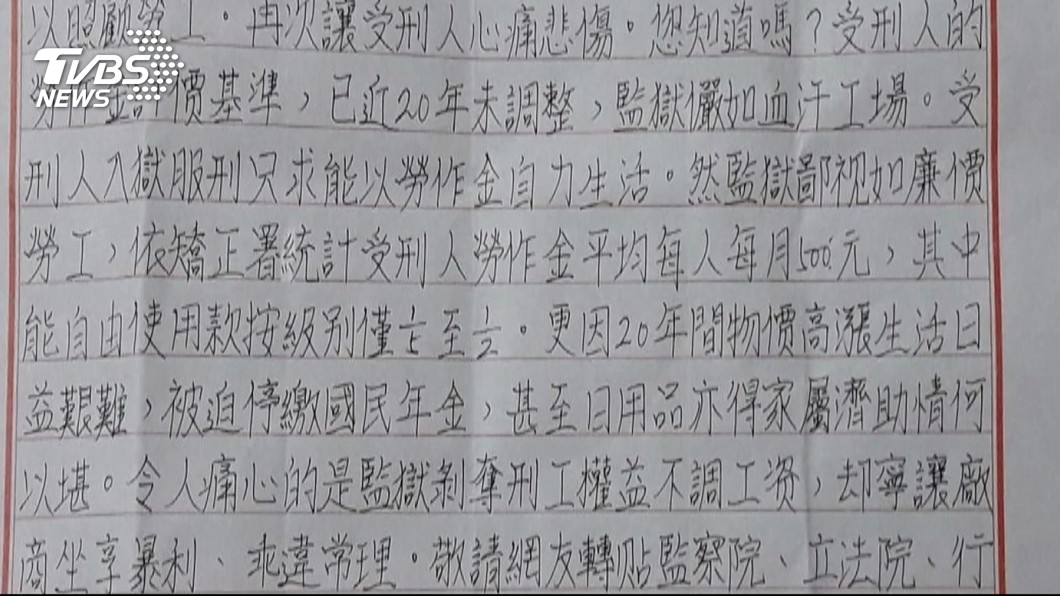 以照勸勞工。再次讓受刑人心痛悲傷。您知道嗎?受刑人的
TVBS
NEWS
勞作金計價基準,已近20年未調整,監獄儼如血汗工場。受
刑人入獄服刑只求能以勞作金自力生活。然監獄鄙視如廉價
勞工,依矯正署統計受刑人勞作金平均每人每月500元,其中
能自由使用款按級別僅1/5至1/2。更因20年間物價高漲生活日
益艱難,被迫停繳國民年金,甚至日用品亦得家屬濟助情何
以堪。令人痛心的是監獄剝奪刑工權益不調工資,却寧讓廠
商坐享暴利、乖違常理。敬請網友轉貼監察院、立法院、行